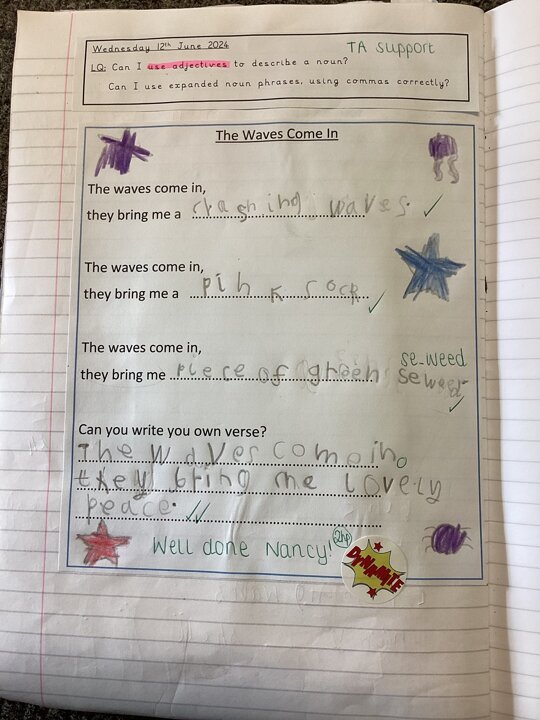 Wednesday 12th June 2024
TA Support
LQ: Can I use adjectives to describe a noun?
Can I use expanded noun phrases, using commas correctly?
The Waves Come In
The waves come in,
they bring me a crashing waves.
The waves come in,
they bring me a pink rock
The waves come in,
se-weed
they bring me piece of green
Can you write you own verse?
The waves come in
they bring me lovely
peace.
Well done Nancy! 2hp
DYNAMITE